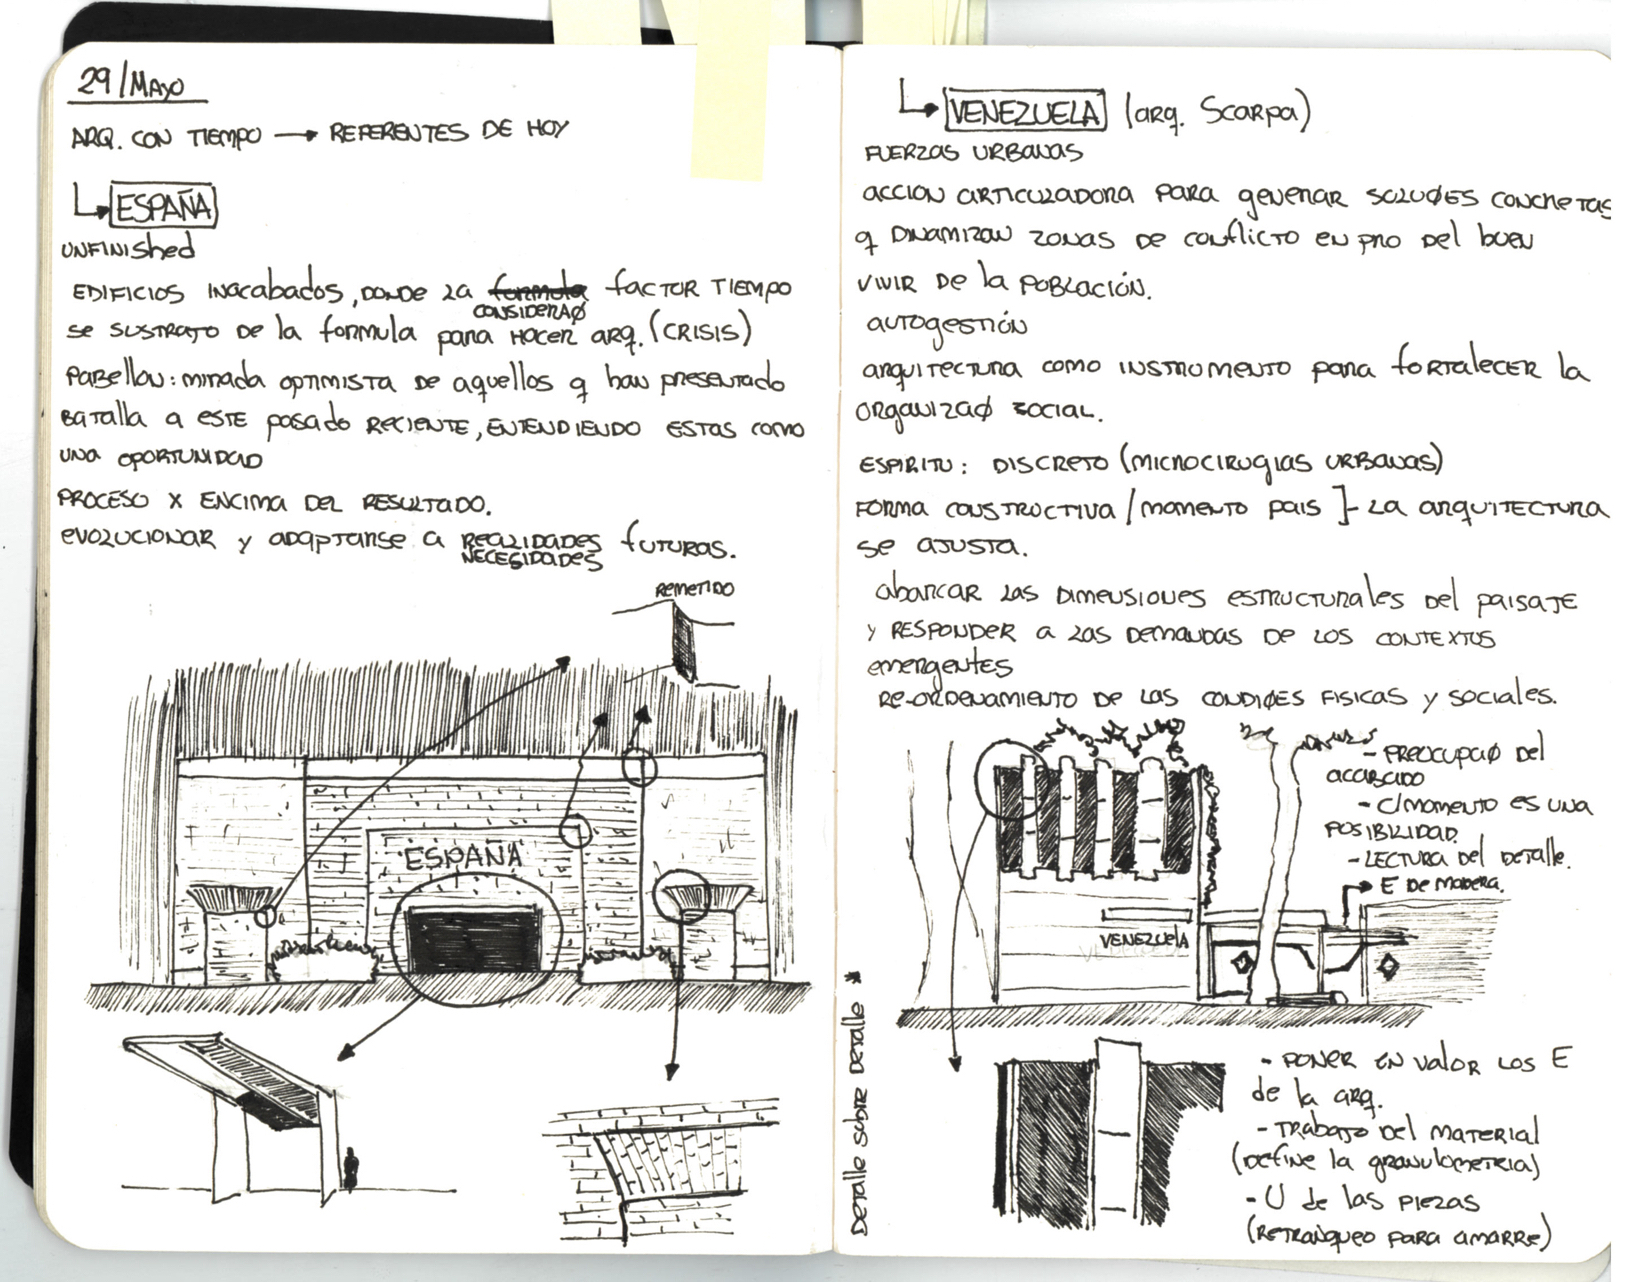 29/Mayo
ARQ. CON TIEMPO → REFERENTES DE HOY
ESPAÑA
UNFINISHED
EDIFICIOS INACABADOS, DONDE LA formula FACTOR TIEMPO
CONSIDERAØ
SE SUSTRAJO DE LA FORMULA PARA HACER ARQ. (CRISIS)
PABELLON: MIRADA OPTIMISTA DE AQUELLOS q HAN PRESENTADO
BATALLA A ESTE PASADO RECIENTE, ENTENDIENDO ESTAS COMO
UNA OPORTUNIDAD
PROCESO X ENCIMA DEL RESULTADO.
EVOLUCIONAR Y ADAPTARSE A REALIDADES FUTURAS.
NECESIDADES
REMETIDO
ESPAÑA
VENEZUELA (arq. Scarpa)
FUERZAS URBANAS
ACCION ARTICULADORA PARA GENERAR SOLUØES CONCRETAS
q DINAMIZAN ZONAS DE CONFLICTO EN PRO DEL BUEN
VIVIR DE LA POBLACIÓN.
AUTOGESTIÓN
ARQUITECTURA COMO INSTRUMENTO PARA FORTALECER LA
ORGANIZAØ SOCIAL.
ESPIRITU: DISCRETO (MICROCIRUGIAS URBANAS)
FORMA CONSTRUCTIVA / MOMENTO PAIS ]- LA ARQUITECTURA
SE AJUSTA.
ABARCAR LAS DIMENSIONES ESTRUCTURALES DEL PAISAJE
Y RESPONDER A LAS DEMANDAS DE LOS CONTEXTOS
EMERGENTES
RE-ORDENAMIENTO DE LAS CONDIØES FISICAS Y SOCIALES.
- PREOCUPAØ DEL
ACABADO
- C/MOMENTO ES UNA
POSIBILIDAD.
- LECTURA DEL DETALLE.
E DE MADERA.
VENEZUELA
Detalle sobre Detalle *
- PONER EN VALOR LOS E
DE LA ARQ.
- TRABAJO DEL MATERIAL
(DEFINE LA GRANULOMETRIA)
- U DE LAS PIEZAS
(RETRANQUEO PARA AMARRE)